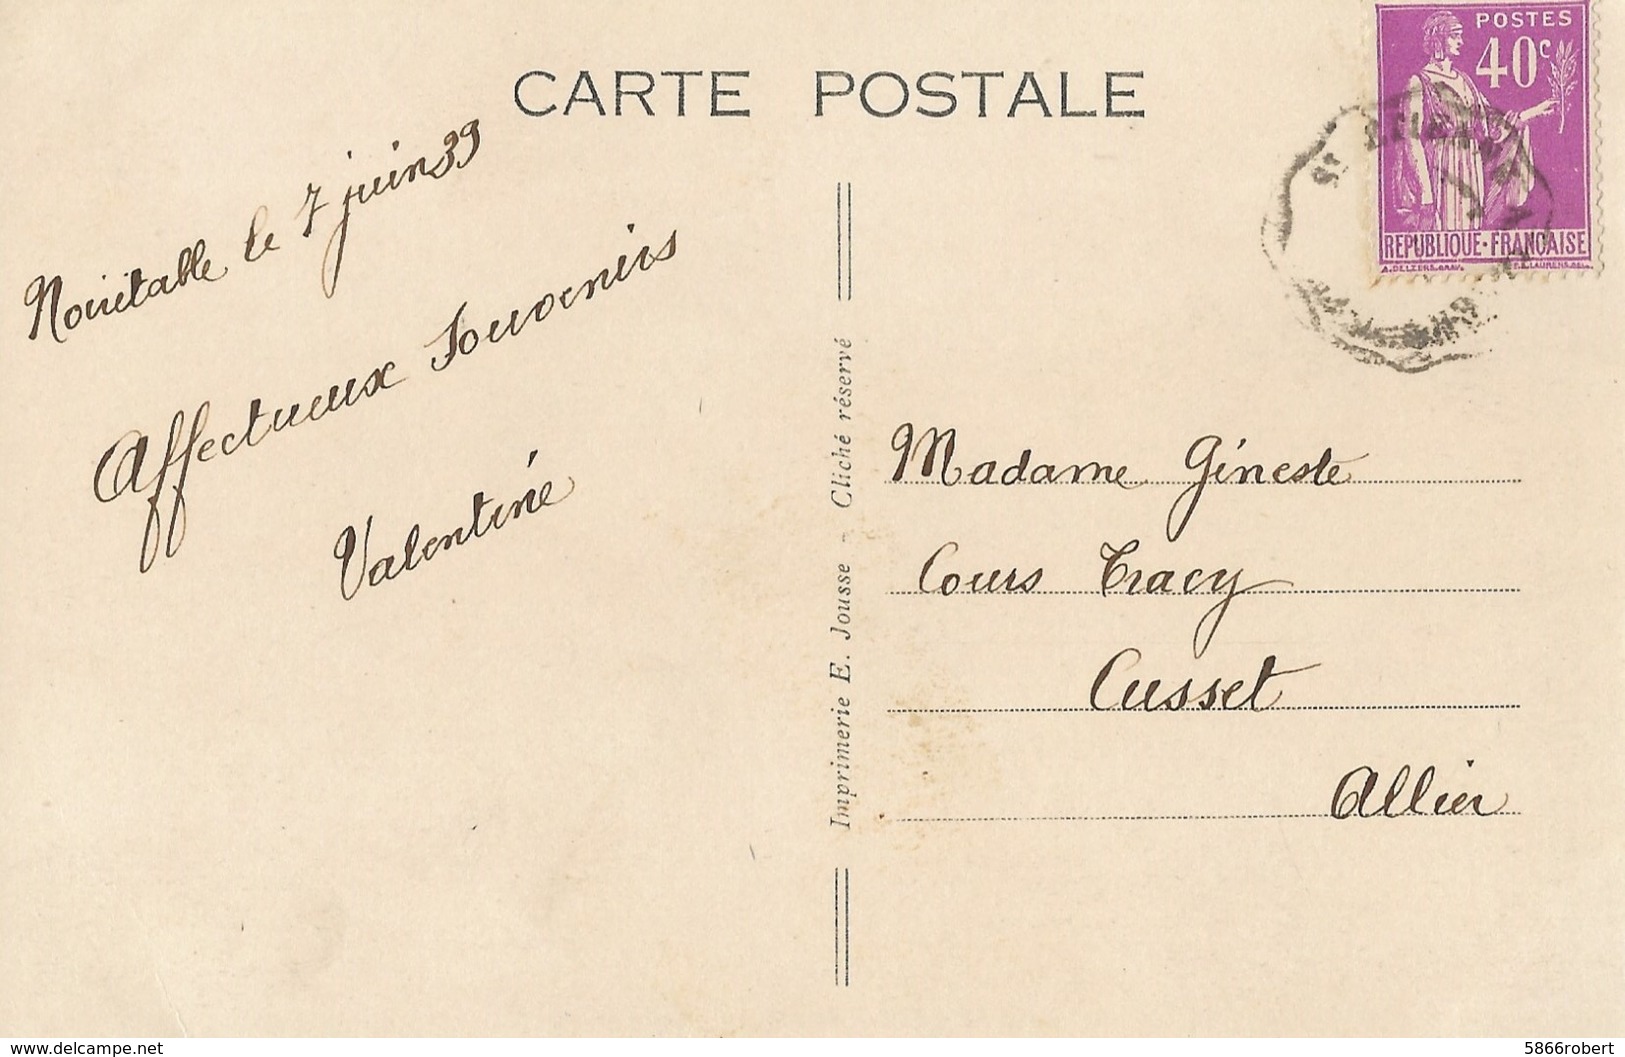 CARTE POSTALE
POSTES
40c
REPUBLIQUE·FRANÇAISE
Noirétable le 7 juin 39
Affectueux Souvenirs
Valentine
Imprimerie E. Jousse - Cliché réservé
Madame Gineste
Cours Tracy
Cusset
Allier
www.delcampe.net
5866robert